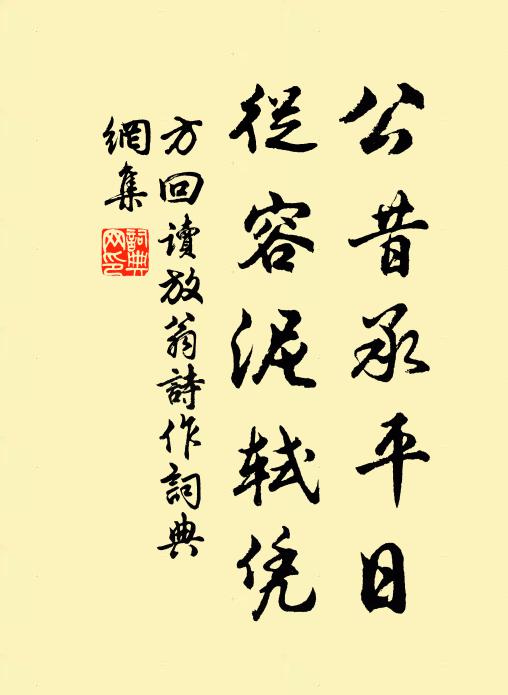 公昔承平日
從容泥軾凭
方回讀放翁詩作詞典
網集
詞典
网印